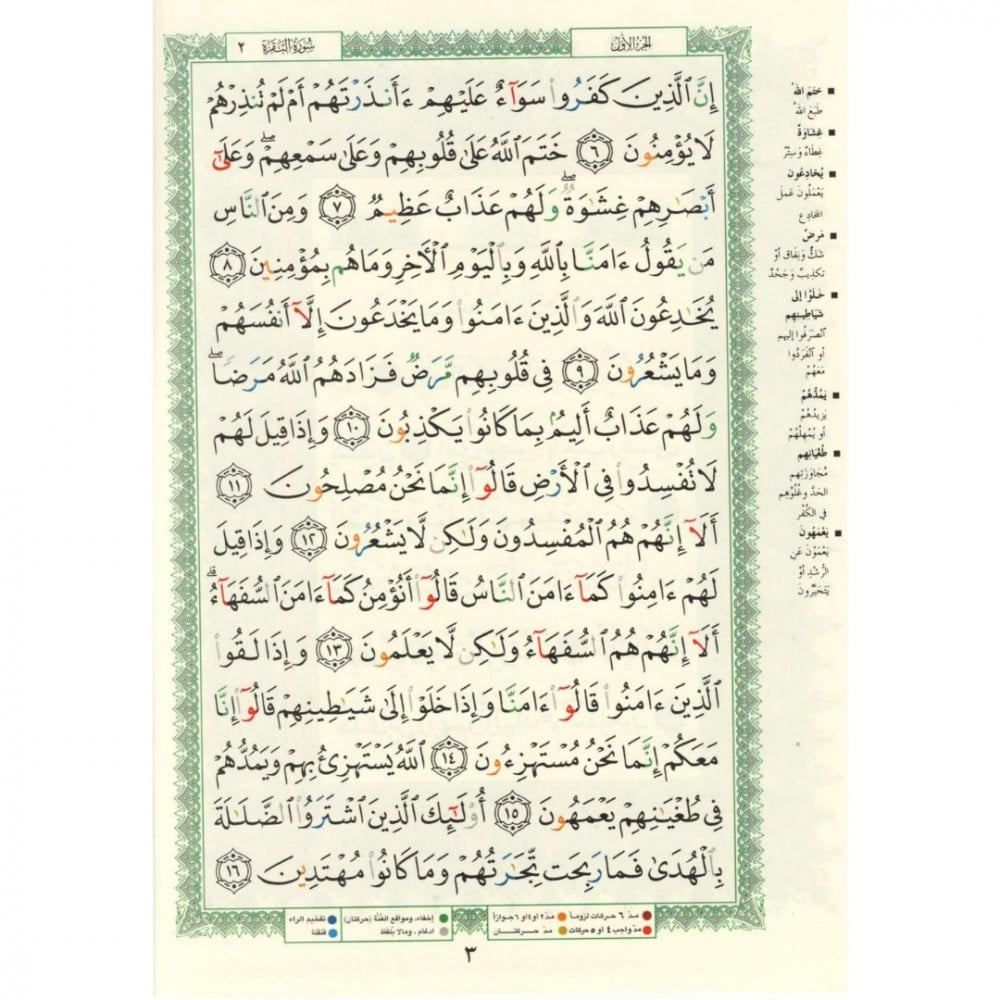 الجزء الأول
سورة البقرة ٢
إِنَّ ٱلَّذِينَ كَفَرُوا۟ سَوَآءٌ عَلَيْهِمْ ءَأَنذَرْتَهُمْ أَمْ لَمْ تُنذِرْهُمْ
لَا يُؤْمِنُونَ ٦ خَتَمَ ٱللَّهُ عَلَىٰ قُلُوبِهِمْ وَعَلَىٰ سَمْعِهِمْ ۖ وَعَلَىٰٓ
أَبْصَـٰرِهِمْ غِشَـٰوَةٌ ۖ وَلَهُمْ عَذَابٌ عَظِيمٌ ٧ وَمِنَ ٱلنَّاسِ
مَن يَقُولُ ءَامَنَّا بِٱللَّهِ وَبِٱلْيَوْمِ ٱلْأَخِرِ وَمَا هُم بِمُؤْمِنِينَ ٨
يُخَـٰدِعُونَ ٱللَّهَ وَٱلَّذِينَ ءَامَنُوا۟ وَمَا يَخْدَعُونَ إِلَّآ أَنفُسَهُمْ
وَمَا يَشْعُرُونَ ٩ فِى قُلُوبِهِم مَّرَضٌ فَزَادَهُمُ ٱللَّهُ مَرَضًا ۖ
وَلَهُمْ عَذَابٌ أَلِيمٌۢ بِمَا كَانُوا۟ يَكْذِبُونَ ١٠ وَإِذَا قِيلَ لَهُمْ
لَا تُفْسِدُوا۟ فِى ٱلْأَرْضِ قَالُوٓا۟ إِنَّمَا نَحْنُ مُصْلِحُونَ ١١
أَلَآ إِنَّهُمْ هُمُ ٱلْمُفْسِدُونَ وَلَـٰكِن لَّا يَشْعُرُونَ ١٢ وَإِذَا قِيلَ
لَهُمْ ءَامِنُوا۟ كَمَآ ءَامَنَ ٱلنَّاسُ قَالُوٓا۟ أَنُؤْمِنُ كَمَآ ءَامَنَ ٱلسُّفَهَآءُ ۗ
أَلَآ إِنَّهُمْ هُمُ ٱلسُّفَهَآءُ وَلَـٰكِن لَّا يَعْلَمُونَ ١٣ وَإِذَا لَقُوا۟
ٱلَّذِينَ ءَامَنُوا۟ قَالُوٓا۟ ءَامَنَّا وَإِذَا خَلَوْا۟ إِلَىٰ شَيَـٰطِينِهِمْ قَالُوٓا۟ إِنَّا
مَعَكُمْ إِنَّمَا نَحْنُ مُسْتَهْزِءُونَ ١٤ ٱللَّهُ يَسْتَهْزِئُ بِهِمْ وَيَمُدُّهُمْ
فِى طُغْيَـٰنِهِمْ يَعْمَهُونَ ١٥ أُو۟لَـٰٓئِكَ ٱلَّذِينَ ٱشْتَرَوُا۟ ٱلضَّلَـٰلَةَ
بِٱلْهُدَىٰ فَمَا رَبِحَت تِّجَـٰرَتُهُمْ وَمَا كَانُوا۟ مُهْتَدِينَ ١٦
خَتَمَ اللهُ
طَبَعَ اللهُ
غِشَاوَةٌ
غِطَاءٌ وَسِتْرٌ
يُخَادِعُون
يَعْمَلُونَ عَمَلَ
المخادِع
مَرَضٌ
شَكٌّ وَنِفَاقٌ أَوْ
تَكْذِيبٌ وَجَحْدٌ
خَلَوْا إلى
شَيَاطِينِهِم
انْصَرَفُوا إِلَيهِم
أو انْفَرَدُوا
مَعَهُمْ
يَمُدُّهُمْ
يَزِيدُهُمْ
أو يُمْهِلُهُمْ
طُغْيَانِهِم
مُجَاوَزَتِهِم
الحَدَّ وَغُلُوِّهِم
في الكُفْر
يَعْمَهُونَ
يَعْمَوْنَ عَنِ
الرُّشْدِ أَوْ
يَتَحَيَّرُونَ
مد ٦ حركات لزوماً مد ٢ أو ٤ أو ٦ جوازاً
مد واجب ٤ أو ٥ حركات مد حركتان
إخفاء، ومواقع الغنة (حركتان) تفخيم الراء
ادغام، ومالا يلفظ قلقلة
٣